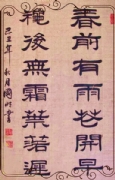 春前有雨花開早
穐後無霜葉落遲
己丑年秋月